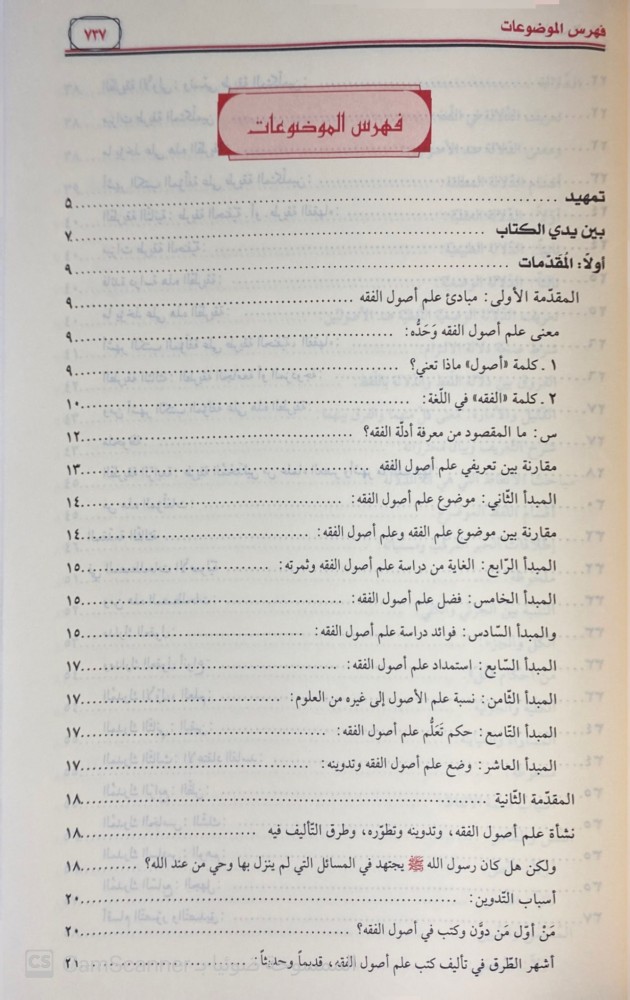 فهرس الموضوعات
٧٣٧
فهرس الموضوعات
تمهيد ٥
بين يدي الكتاب ٧
أولاً: المُقدّمات ٩
المقدّمة الأولى: مبادئ علم أصول الفقه ٩
معنى علم أصول الفقه وَحَدُّه: ٩
١ ـ كلمة «أصول» ماذا تعني؟ ٩
٢ ـ كلمة «الفقه» في اللّغة: ١٠
س: ما المقصود من معرفة أدلّة الفقه؟ ١٢
مقارنة بين تعريفي علم أصول الفقه ١٣
المبدأ الثّاني: موضوع علم أصول الفقه: ١٤
مقارنة بين موضوع علم الفقه وعلم أصول الفقه: ١٤
المبدأ الرّابع: الغاية من دراسة علم أصول الفقه وثمرته: ١٥
المبدأ الخامس: فضل علم أصول الفقه: ١٥
والمبدأ السّادس: فوائد دراسة علم أصول الفقه: ١٥
المبدأ السّابع: استمداد علم أصول الفقه: ١٧
المبدأ الثّامن: نسبة علم الأصول إلى غيره من العلوم: ١٧
المبدأ التّاسع: حكم تَعَلُّم علم أصول الفقه: ١٧
المبدأ العاشر: وضع علم أصول الفقه وتدوينه: ١٧
المقدّمة الثّانية ١٨
نشأة علم أصول الفقه، وتدوينه وتطوّره، وطرق التّأليف فيه ١٨
ولكن هل كان رسول الله ﷺ يجتهد في المسائل التي لم ينزل بها وحي من عند الله؟ ١٨
أسباب التّدوين: ٢٠
مَنْ أوّل مَن دوَّن وكتب في أصول الفقه؟ ٢٠
أشهر الطّرق في تأليف كتب علم أصول الفقه، قديماً وحديثاً: ٢١
CS CamScanner